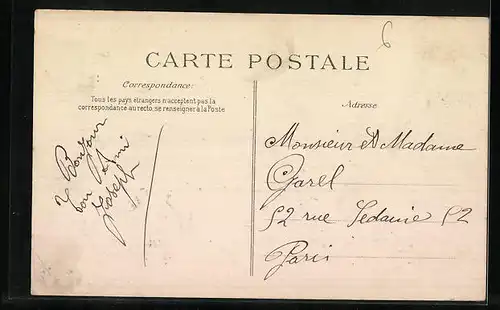 6
CARTE POSTALE
Correspondance:
Tous les pays étrangers n'acceptent pas la
correspondance au recto, se renseigner à la Poste
Adresse
Bonjour
bon Ami
Joseph
Monsieur et Madame
Garel
52 rue Sedaine 52
Paris